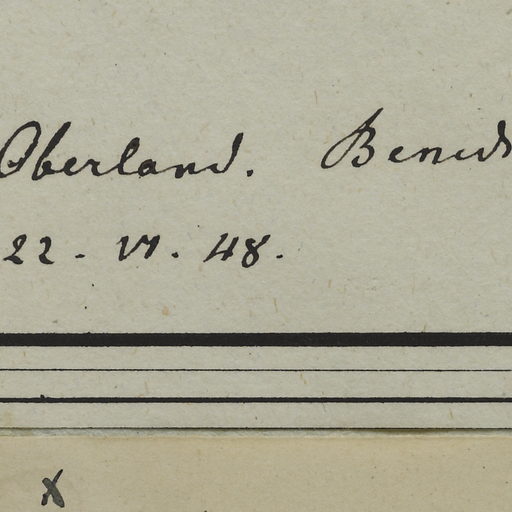 Oberland.
22. VI. 48.
x